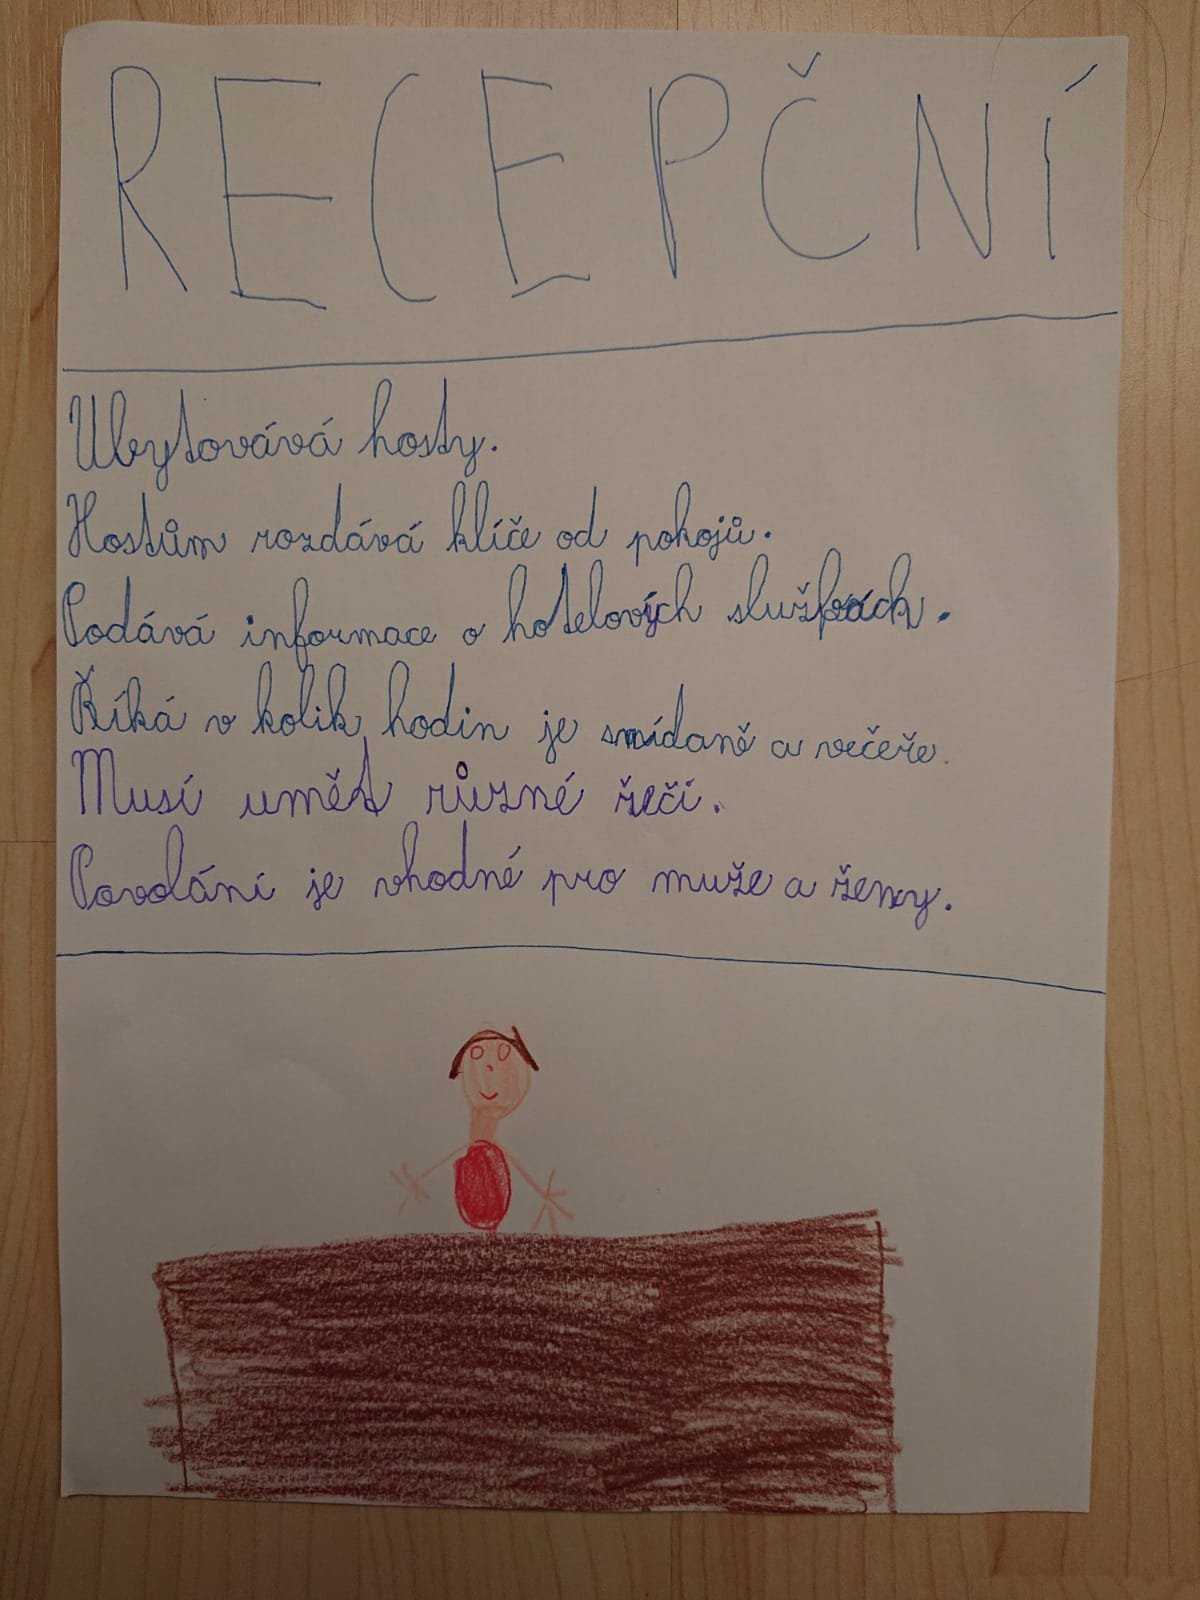 RECEPČNÍ
Ubytovává hosty.
Hostům rozdává klíče od pokojů.
Podává informace o hotelových službách.
Říká v kolik hodin je snídaně a večeře.
Musí umět různé řečí.
Povolání je vhodné pro muže a ženy.